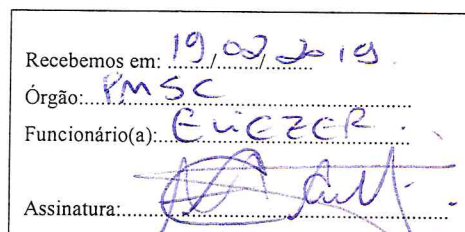 Recebemos em: 19/02/2019
Órgão: PMSC
Funcionário(a): ELIEZER
Assinatura: